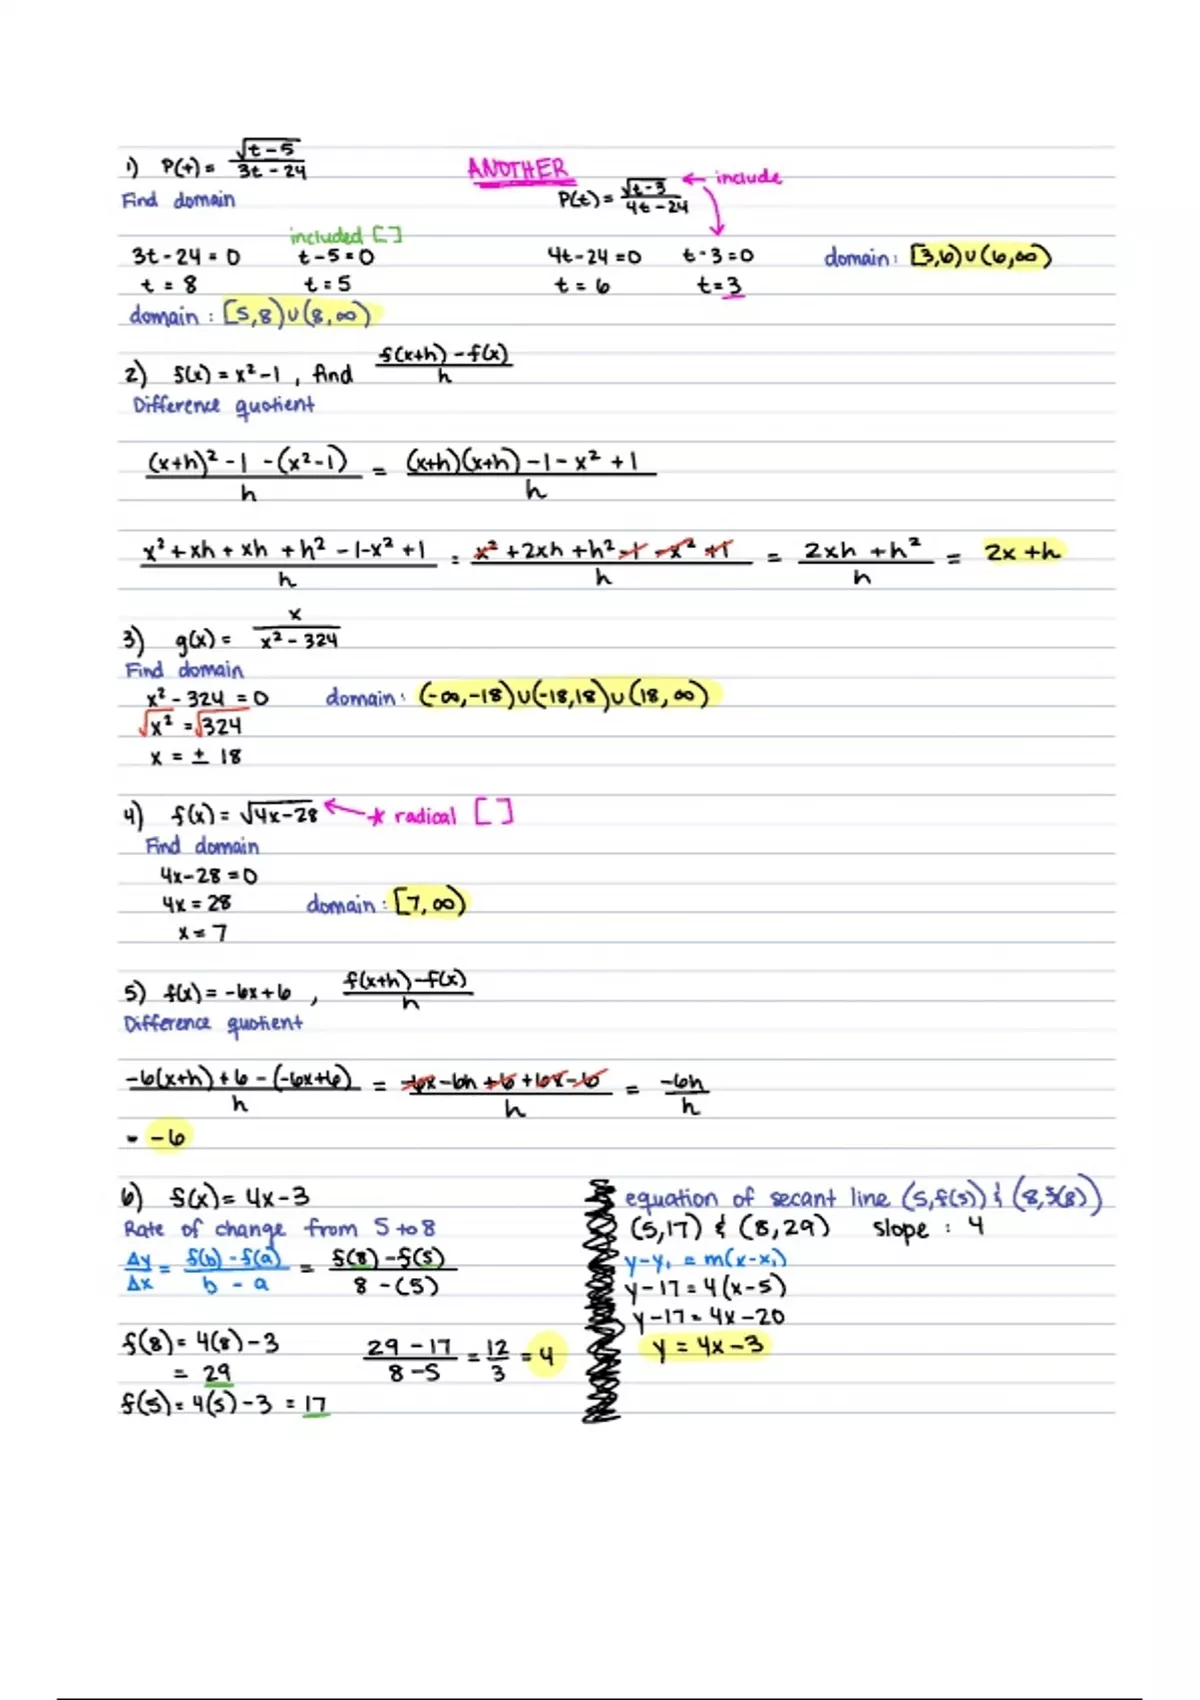 1) P(t) = √(t-5) / (3t-24)
Find domain
ANOTHER
P(t) = √(t-3) / (4t-24) ← include
included [ ]
3t-24=0 t-5=0
t = 8 t = 5
domain : [5,8)∪(8,∞)
4t-24=0 t-3=0
t = 6 t=3
domain: [3,6)∪(6,∞)
2) f(x) = x²-1 , find (f(x+h)-f(x)) / h
Difference quotient
((x+h)²-1-(x²-1)) / h = ((x+h)(x+h)-1-x²+1) / h
(x²+xh+xh+h²-1-x²+1) / h = (x²+2xh+h²-1-x²+1) / h = (2xh+h²) / h = 2x+h
3) g(x) = x / (x²-324)
Find domain
x²-324=0 domain: (-∞,-18)∪(-18,18)∪(18,∞)
√x² = √324
x = ± 18
4) f(x) = √(4x-28) ← * radical [ ]
Find domain
4x-28=0
4x=28 domain: [7,∞)
x=7
5) f(x) = -6x+6 , (f(x+h)-f(x)) / h
Difference quotient
(-6(x+h)+6-(-6x+6)) / h = (-6x-6h+6+6x-6) / h = -6h / h
= -6
6) f(x)= 4x-3
Rate of change from 5 to 8
Δy/Δx = (f(b)-f(a)) / (b-a) = (f(8)-f(5)) / (8-(5))
f(8)= 4(8)-3
= 29
f(5)= 4(5)-3 = 17
(29-17) / (8-5) = 12/3 = 4
equation of secant line (5,f(5)) & (8,f(8))
(5,17) & (8,29) slope : 4
y-y₁ = m(x-x₁)
y-17=4(x-5)
y-17=4x-20
y = 4x-3